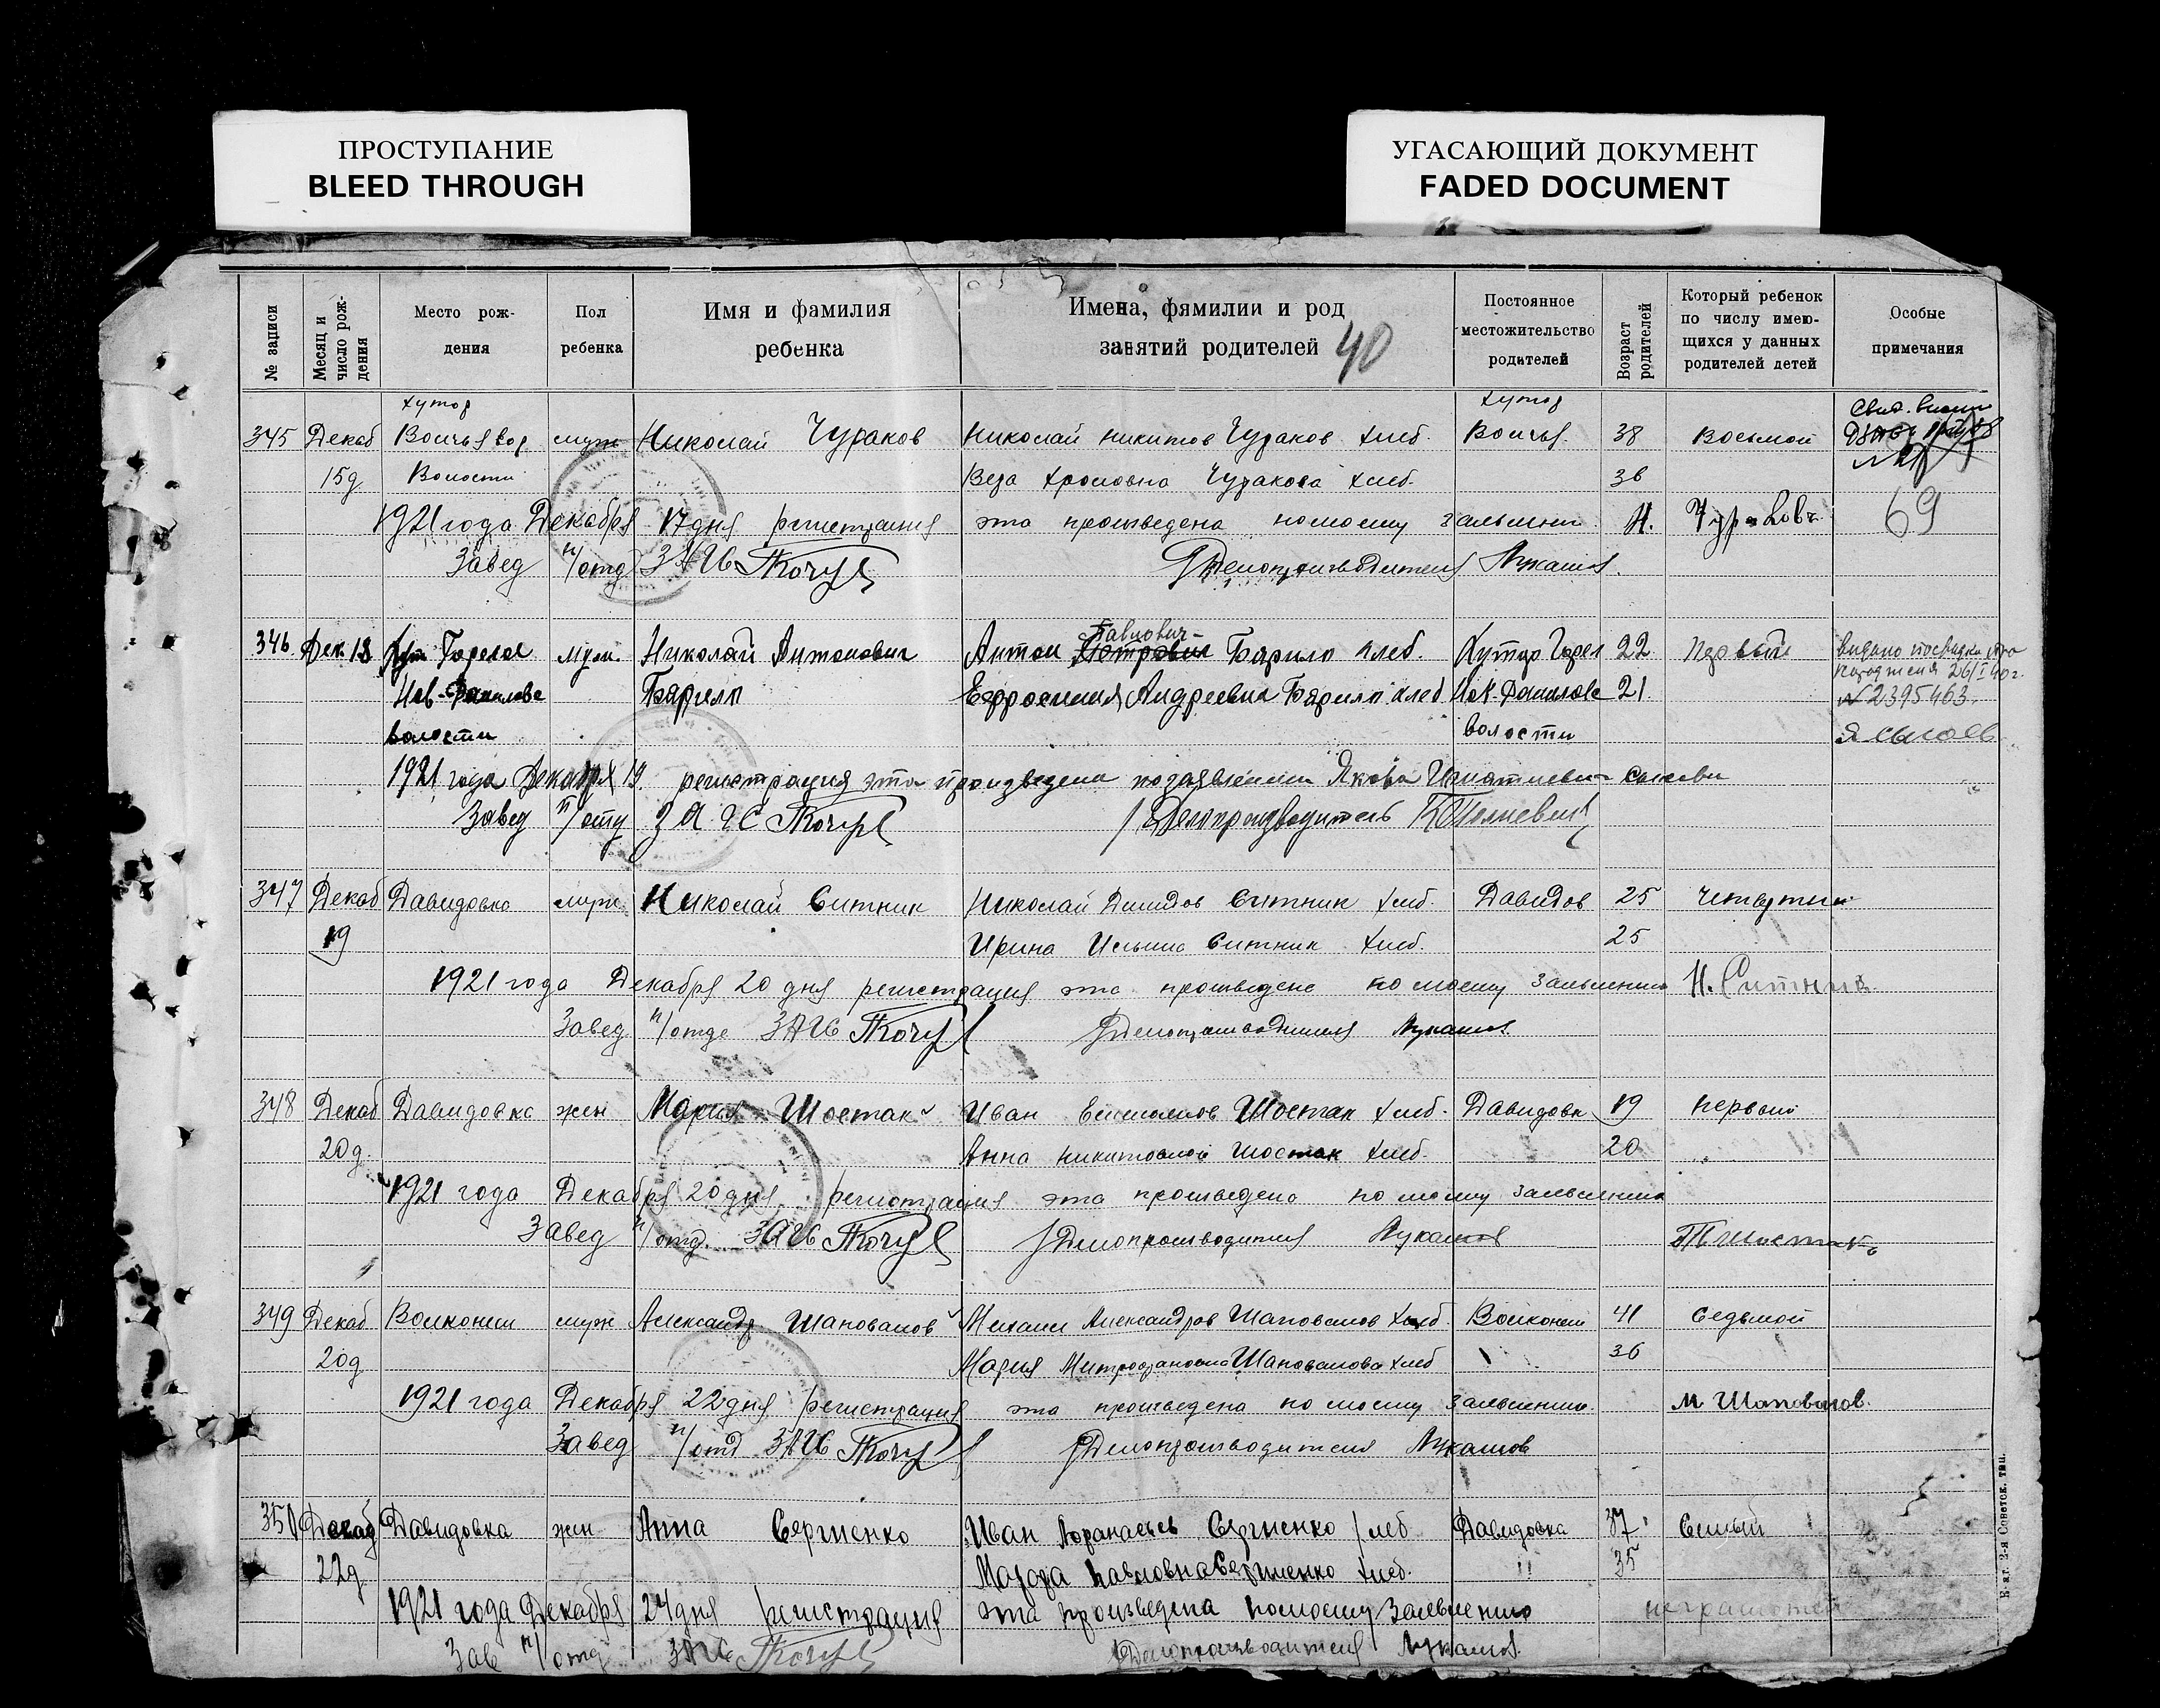 ПРОСТУПАНИЕ
BLEED THROUGH
УГАСАЮЩИЙ ДОКУМЕНТ
FADED DOCUMENT
№ записи
Месяц и число рож-дения
Место рож-дения
Пол ребенка
Имя и фамилия ребенка
Имена, фямилии и род занятий родителей 40
Постоянное местожительство родителей
Возраст родителей
Который ребенок по числу имею-щихся у данных родителей детей
Особые примечания
хутор хутор
345 Декаб Волчья муж Николай Чураков Николай Никитов Чураков хлеб. Волчья 38 Восьмой
15д Волости Вера Чуракова хлеб. 36
1921 года Декабря 17 дня регистрация эта произведена по моему заявлению Н. Чураковъ 69
Завед п/отд ЗАГС Делопроизводитель Лукашов
Павлович
346. Дек. 18 Хут Горелая муж. Николай Антонович Антон Петрович Барило хлеб. Хутор Горел 22 Первый
Барило Ефросиния Андреевна Барило хлеб 21 № 2395463
волости волости
1921 года Декабря 19. регистрация эта произведена по заявлению Якова Игнатиевич
Завед п/отд ЗАГС Делопроизводитель
347 Декаб Давидовка муж Николай Ситник Николай Ситник хлеб. Давидов 25 Четвертый
19 Ирина Ситник хлеб. 25
1921 года Декабря 20 дня регистрация эта произведена по моему заявлению Н. Ситник
Завед п/отде ЗАГС Делопроизводитель Лукашов
348 Декаб Давидовка жен Мария Шостак Иван Шостак хлеб. Давидовк 19 первый
20д. Анна Никитовна Шостак хлеб. 20
1921 года Декабря 20 дня регистрация эта произведена по моему заявлению
Завед п/отд. ЗАГС Делопроизводитель Лукашов
349 Декаб Волконеш муж Александр Шаповалов Михаил Александров Шаповалов хлеб. Волконеш 41 Седьмой
20д Мария Митрофановна Шаповалова хлеб 36
1921 года Декабря 22 дня регистрация эта произведена по моему заявлению М Шаповалов.
Завед п/отд ЗАГС Делопроизводитель Лукашов
350 Декаб Давидовка жен Анна Сергиенко Иван Афанасьев Сергиенко хлеб Давидовка 37
22д Павловна Сергиенко хлеб. " 35
1921 года Декабря 24 дня регистрация эта произведена по моему заявлению неграмотен
Зав п/отд ЗАГС Делопроизводитель Лукашов